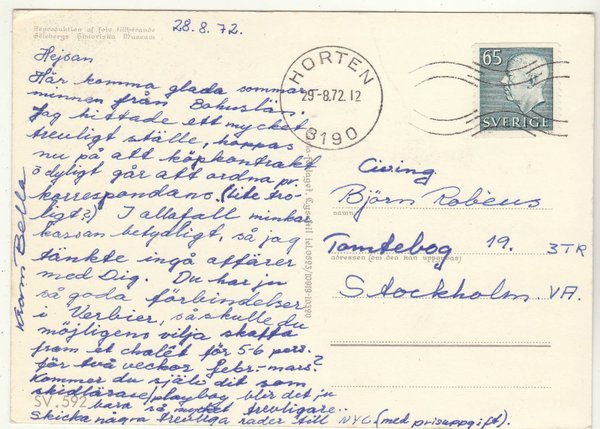 Reproduktion af foto tillhörande
Göteborgs Historiska Museum
28.8.72.
Hejsan
Här komma glada sommar
minnen från Bohuslän..
Jag hittade ett mycket
trevligt ställe, hoppas
nu på att köpkontrakt
o dyligt går att ordna pr
korrespondans (lite tro-
ligt?) I allafall minkar
kassan betydligt, så jag
tänkte ingå affärer
med Dig. Du har ju
så goda förbindelser
i Verbier, så skulle du
möjligens vilja skaffa
fram et chalêt för 5-6 pers.
för två veckor febr-mars?
Kommer du själv dit som
skidlärare/playboy blir det ju
bara så mycket trevligare..
Skicka några trevliga rader till NYC (med prisuppgift).
Kram Bella
SV. 592
HORTEN
29-8.72.12
3190
65
SVERIGE
Civing
Björn Robèus
namn
Tomtebog 19. 3TR
adressen (om den kan uppges)
Stockholm VA.